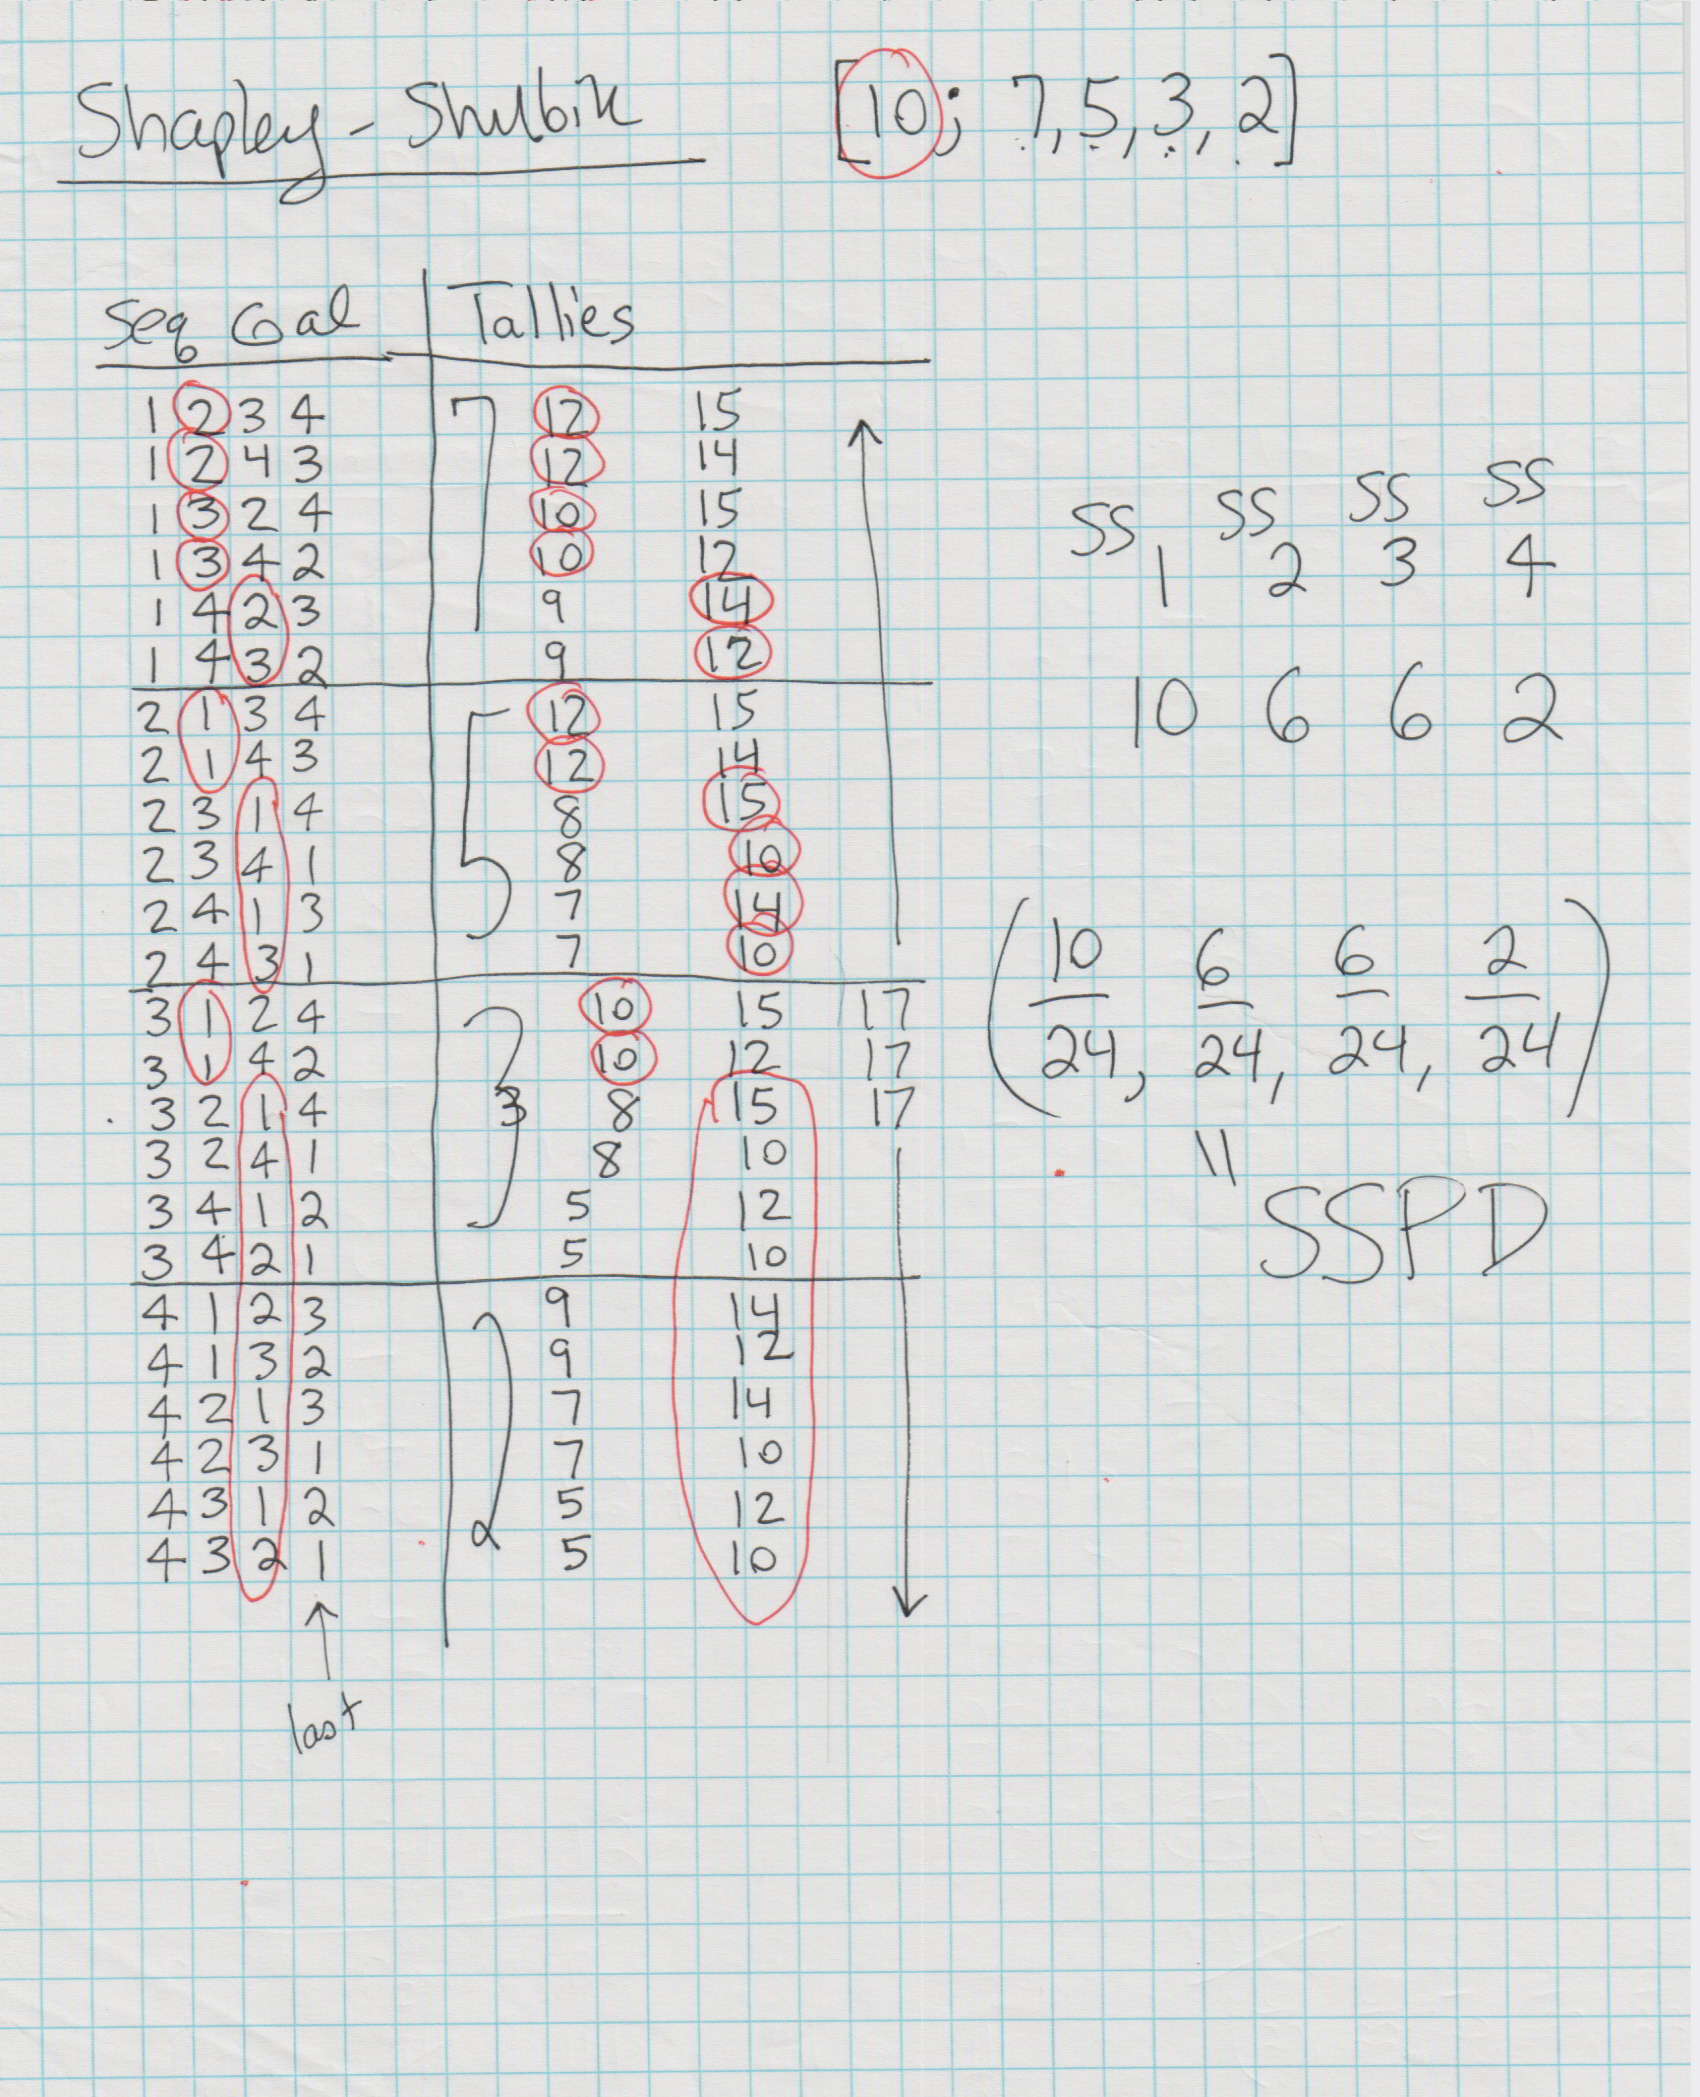 Shapley - Shubik [10; 7, 5, 3, 2]
Seq Coal Tallies
1 2 3 4 7 12 15
1 2 4 3 12 14
1 3 2 4 10 15
1 3 4 2 10 12
1 4 2 3 9 14
1 4 3 2 9 12
2 1 3 4 5 12 15
2 1 4 3 12 14
2 3 1 4 8 15
2 3 4 1 8 10
2 4 1 3 7 14
2 4 3 1 7 10
3 1 2 4 3 10 15 17
3 1 4 2 10 12 17
3 2 1 4 3 8 15 17
3 2 4 1 8 10
3 4 1 2 5 12
3 4 2 1 5 10
4 1 2 3 2 9 14
4 1 3 2 9 12
4 2 1 3 7 14
4 2 3 1 7 10
4 3 1 2 5 12
4 3 2 1 5 10
last
SS1 SS2 SS3 SS4
10 6 6 2
(10/24, 6/24, 6/24, 2/24)
=
SSPD